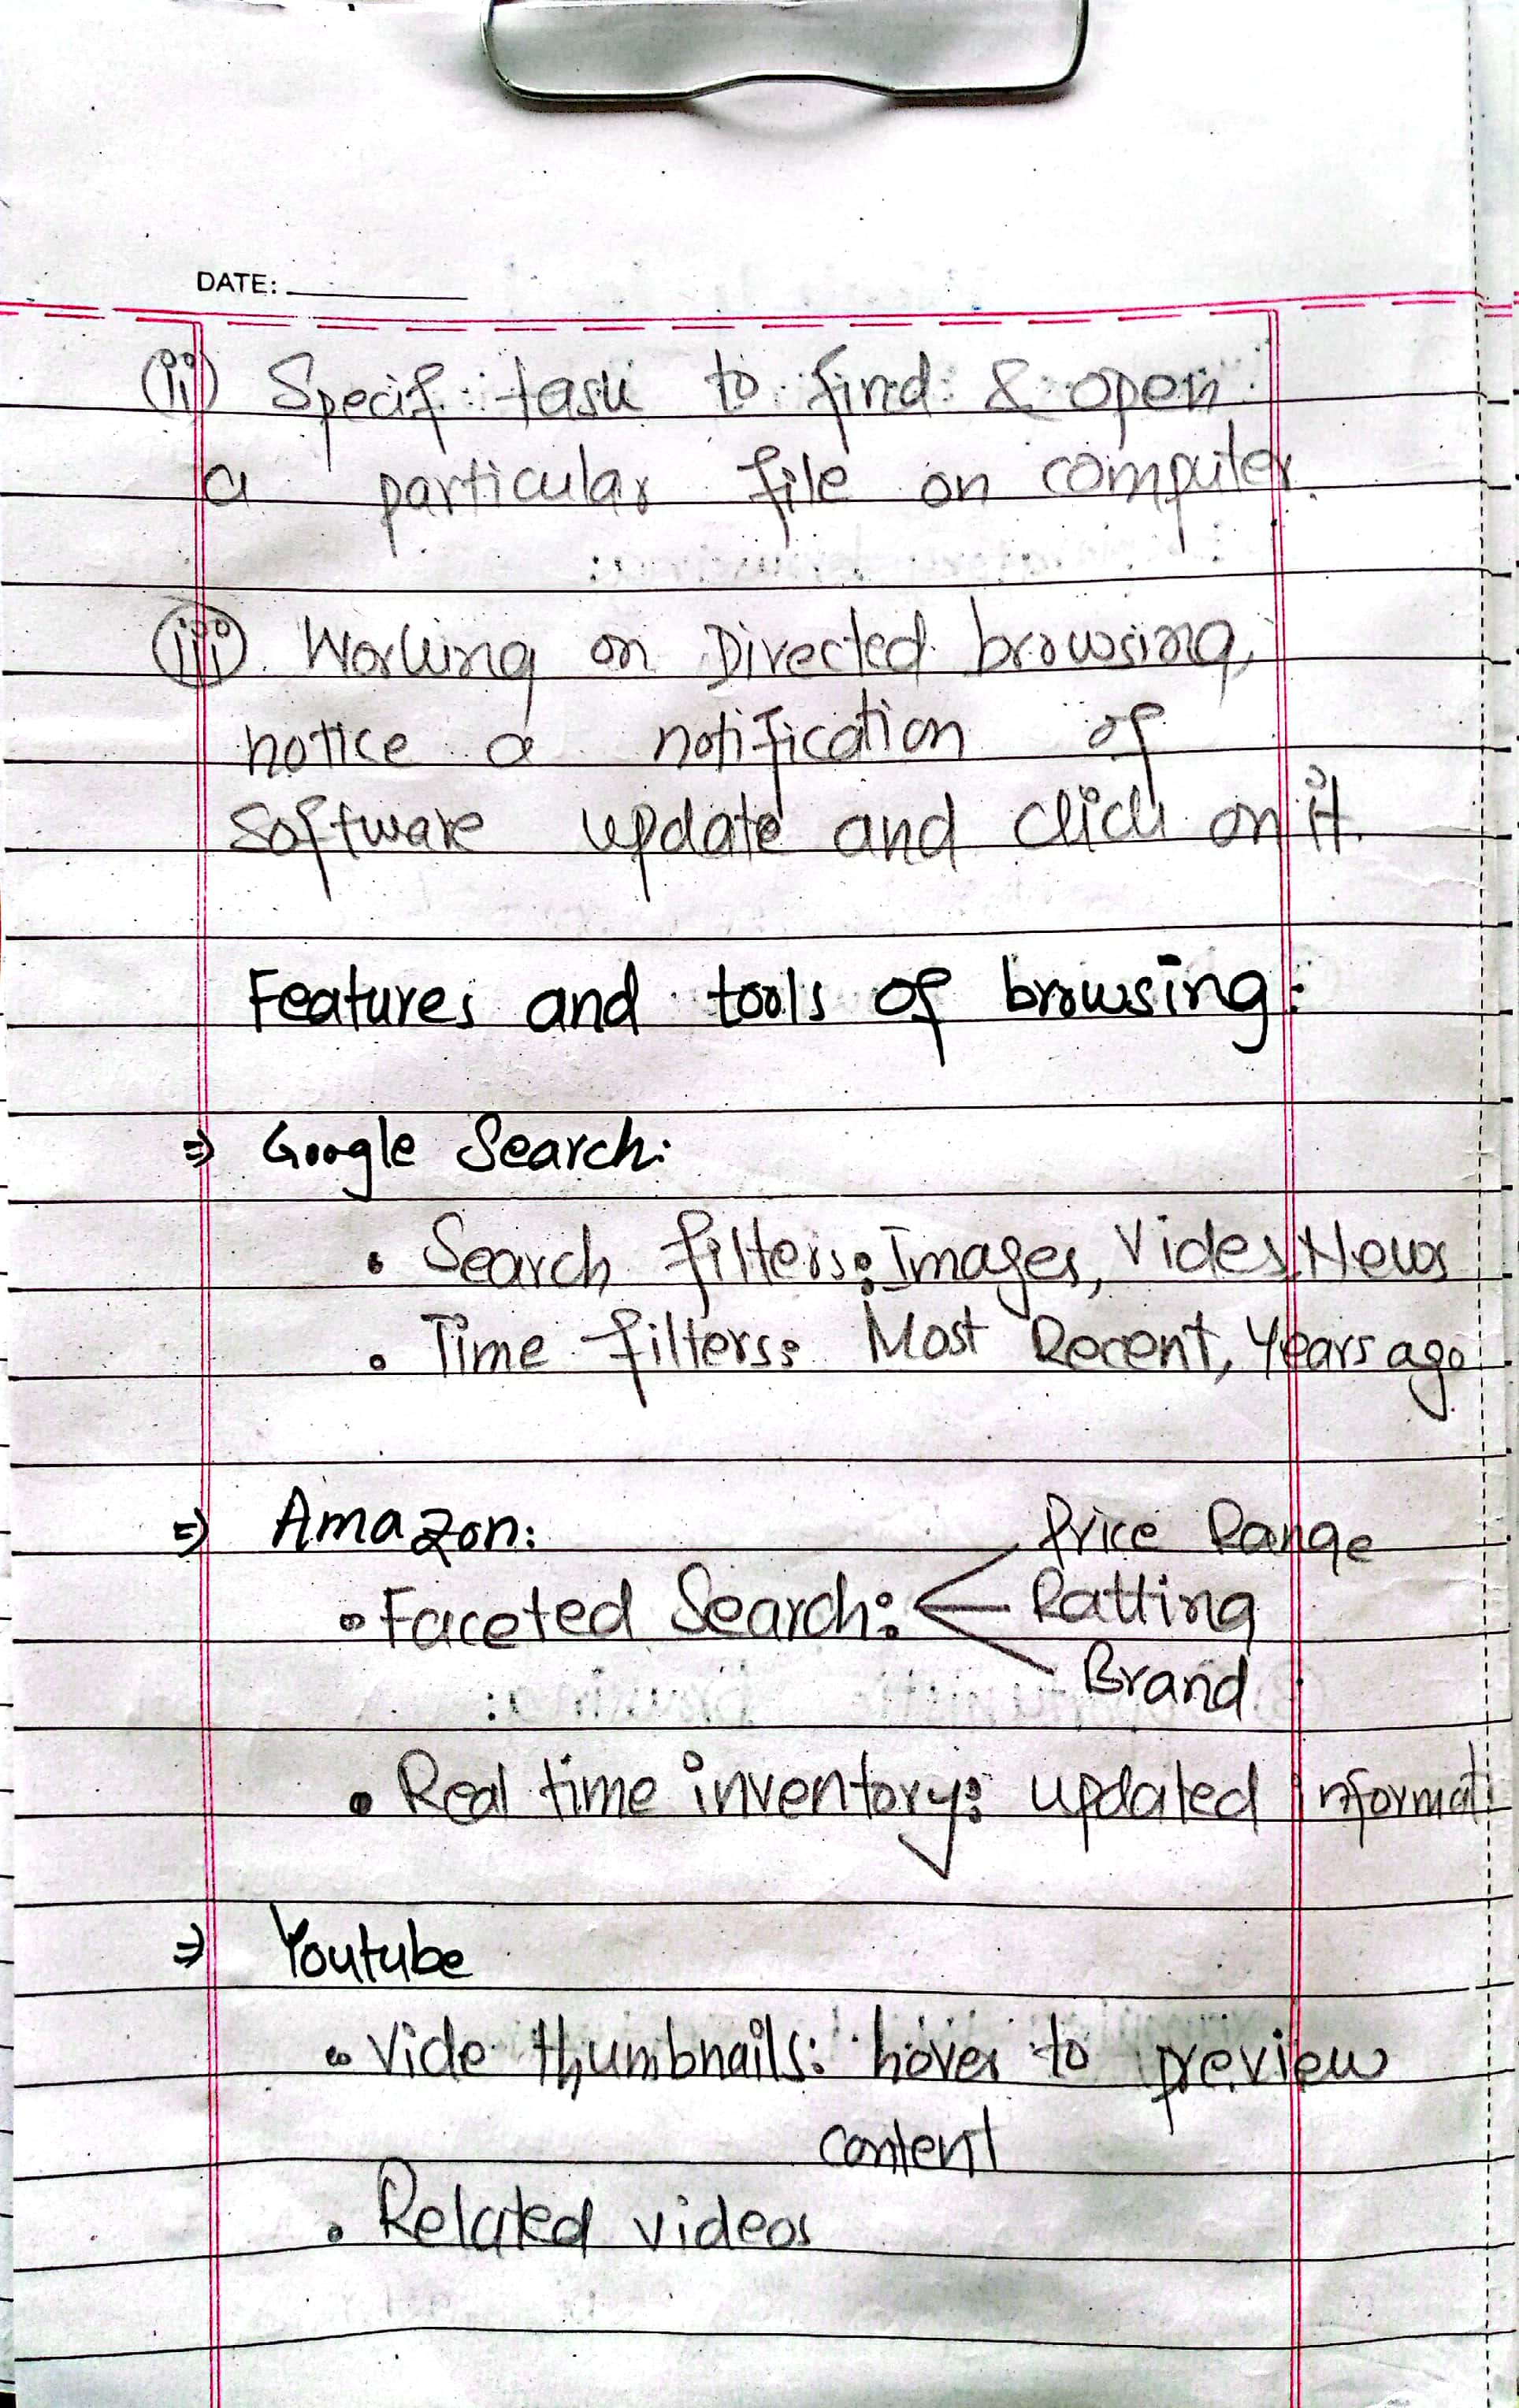 DATE:
(ii) Specif task to find & open
a particular file on computer.
(iii). Working on Directed browsing,
notice a notification of
software update and click on it.
Features and tools of browsing:
⇒ Google Search:
• Search filters: Images, Vides, News
• Time filters: Most Recent, Years ago
⇒ Amazon:
Price Range
• Faceted Search: Ratting
Brand
• Real time inventory: updated informati
⇒ Youtube
• Vide thumbnails: hover to preview
content
• Related videos